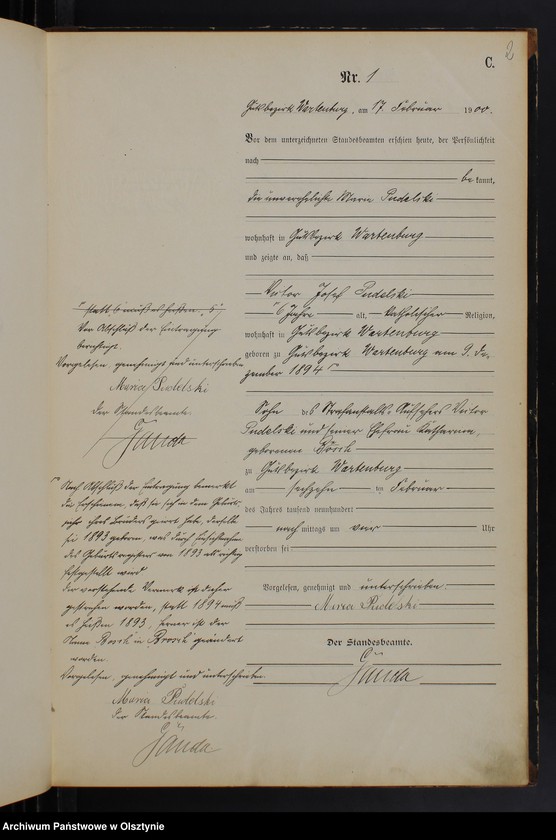 2
C.
Nr. 1
Gutsbezirk Wartenburg, am 17 Februar 1900.
Vor dem unterzeichneten Standesbeamten erschien heute, der Persönlichkeit
nach
be kannt,
die unverehelichte Maria Pudelski
wohnhaft in Gutsbezirk Wartenburg
und zeigte an, daß
Victor Josef Pudelski
6 Jahre alt, katholischer Religion,
wohnhaft in Gutsbezirk Wartenburg
geboren zu Gutsbezirk Wartenburg am 9. De-
zember 1894
Sohn des Strafanstalts-Aufsehers Victor
Pudelski und seiner Ehefrau Katharina,
geborenen Bosch
zu Gutsbezirk Wartenburg
am sechzehn ten Februar
des Jahres tausend neunhundert
nach mittags um vier Uhr
verstorben sei
Vorgelesen, genehmigt und unterschrieben.
Maria Pudelski
Der Standesbeamte.
Janda
statt 6 muß es heißen „5"
Vor Abschluß der Eintragung
berichtigt.
Vorgelesen, genehmigt und unterschrieben
Maria Pudelski
Der Standesbeamte.
Janda
Nach Abschluß der Eintragung bemerkt
die Erschienene, daß sie sich in dem Geburts-
jahr ihres Bruders geirrt habe, derselbe
sei 1893 geboren, was durch Einsichtnahme
des Geburtsregisters von 1893 als richtig
festgestellt wird
der vorstehende Vermerk ist daher
gestrichen worden, statt 1894 muß
es heißen 1893, ferner ist der
Name Bosch in Brosch geändert
worden.
Vorgelesen, genehmigt und unterschrieben.
Maria Pudelski
Der Standesbeamte.
Janda
Archiwum Państwowe w Olsztynie